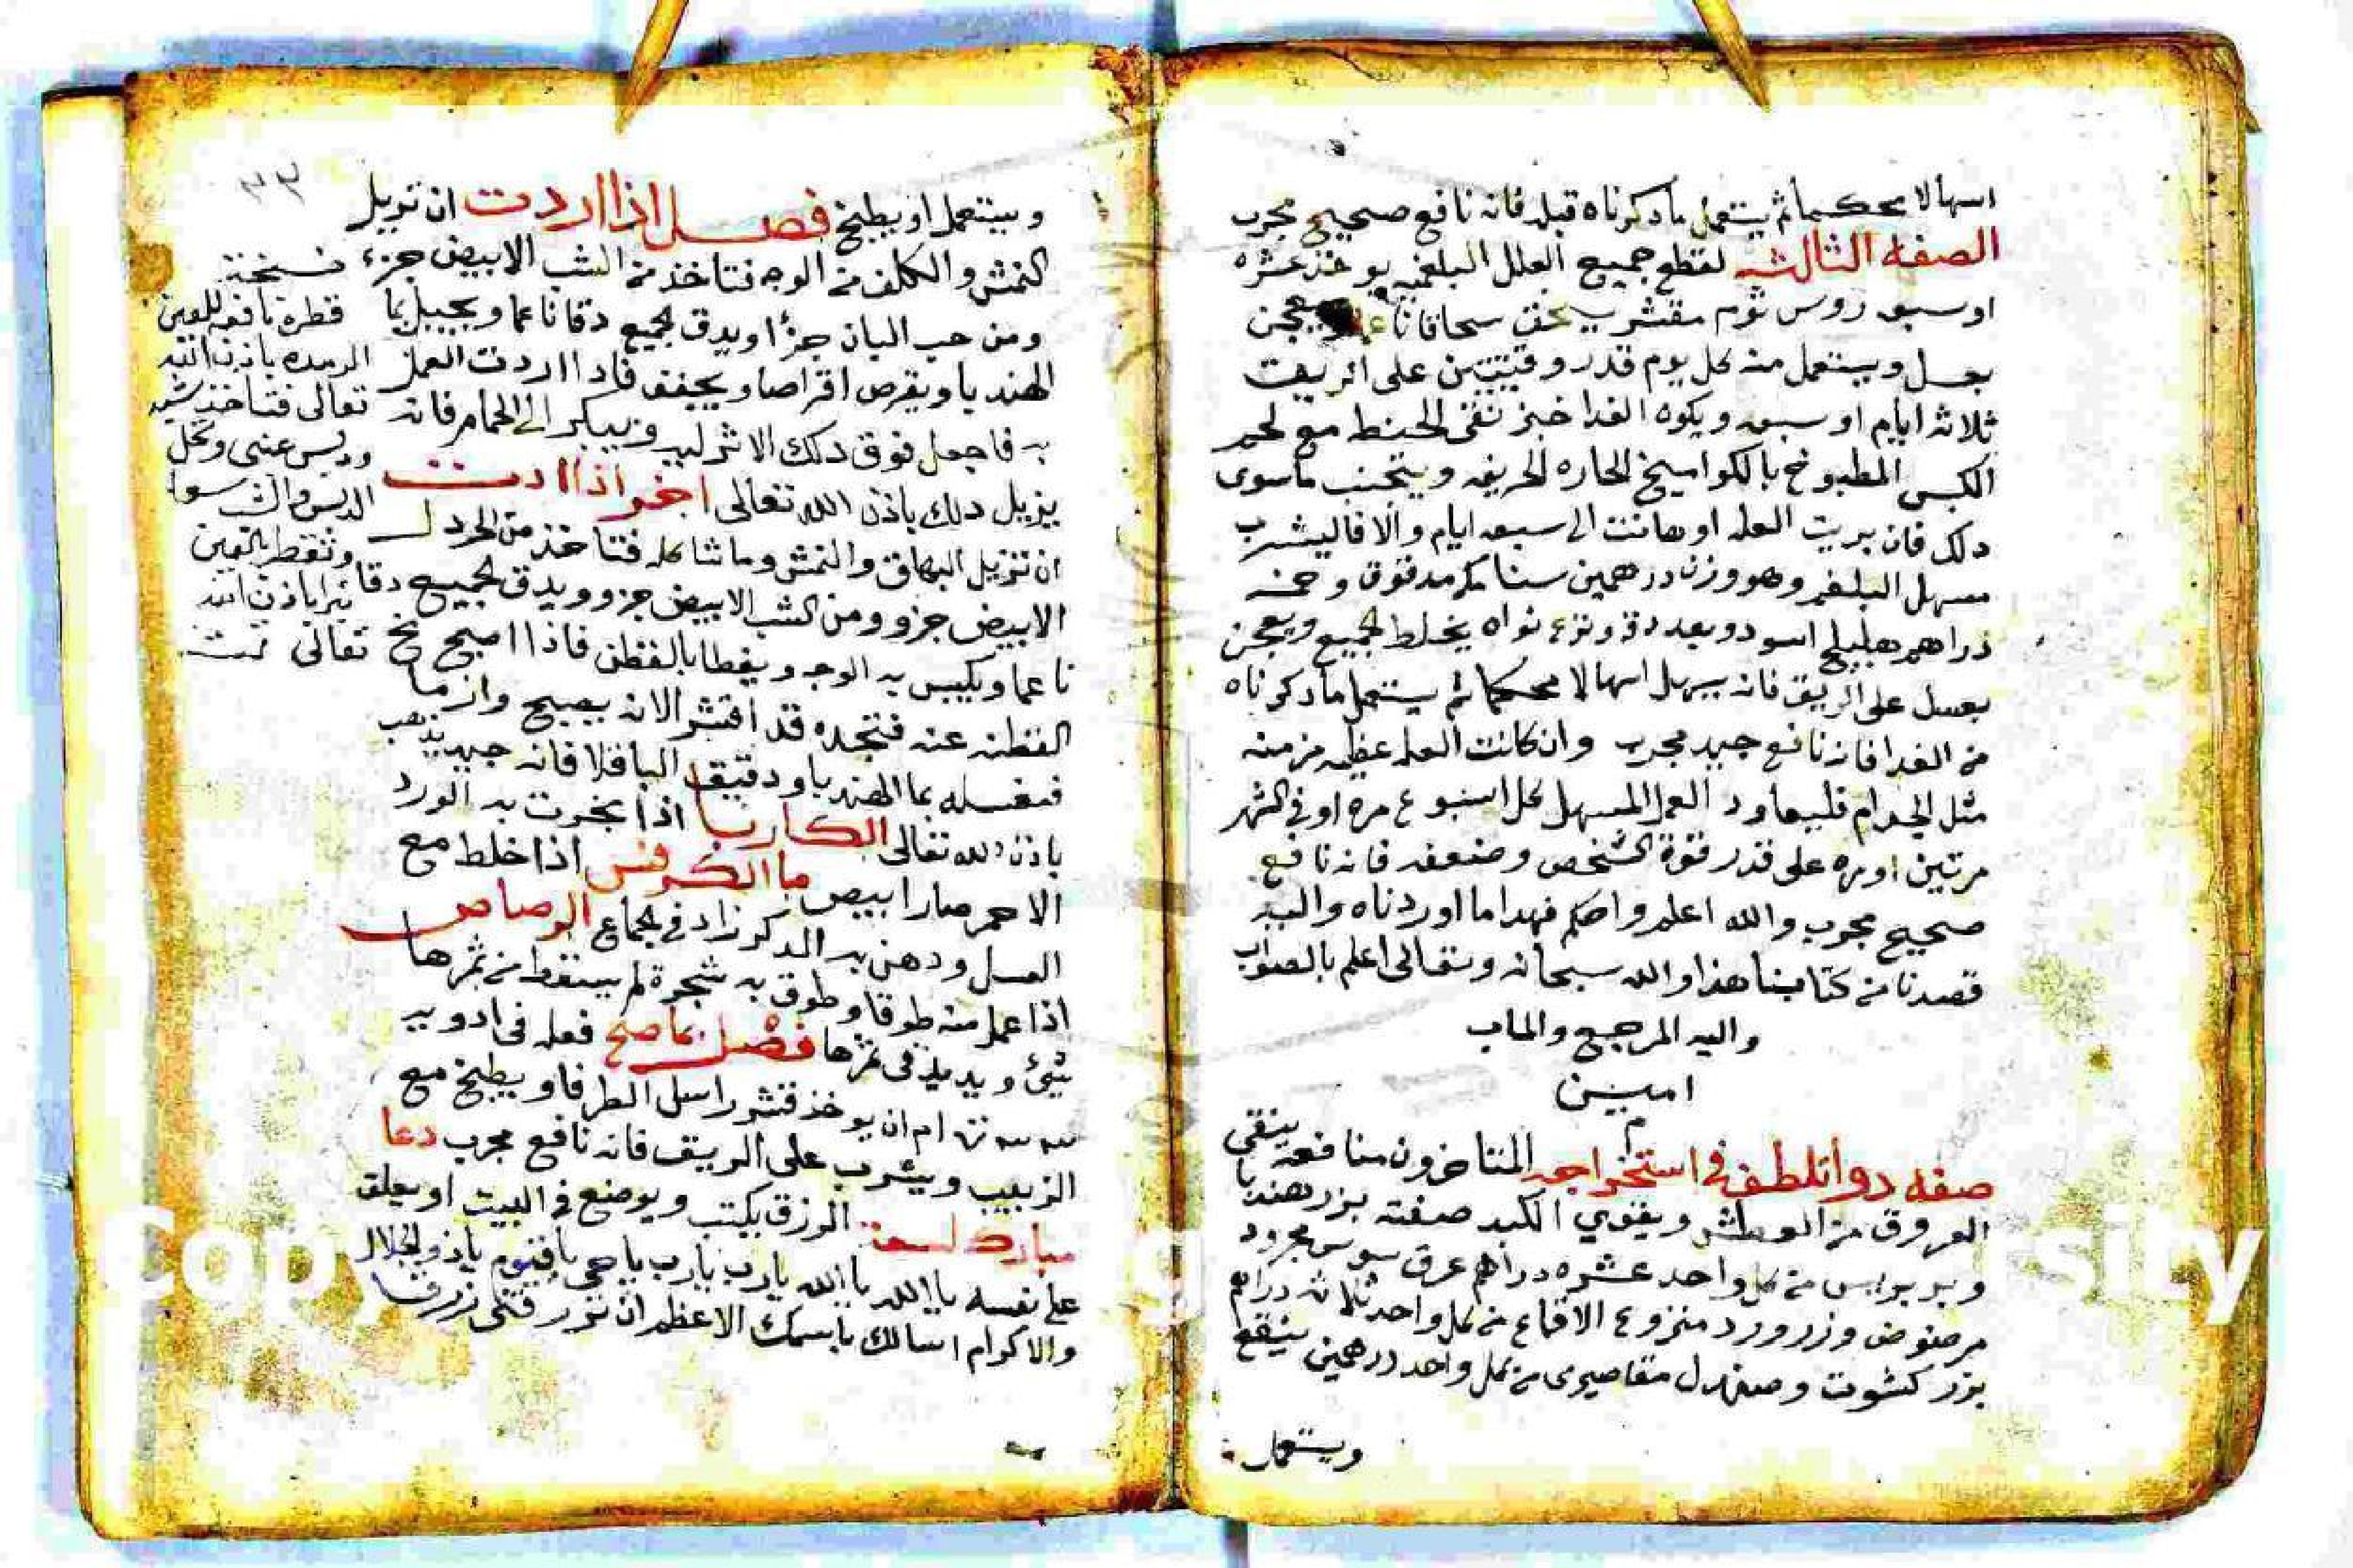 اسهالا محكما ثم يستعمل ما دكرناه قبله فانه نافع صحيح مجرب
الصفه الثالثه لقطع جميع العلل البلغميه يوخذ عشره
او سبعه روس ثوم مقشر يسحق سحاقا ناعما ويعجن
بعسل ويستعمل منه كل يوم قدر وقيتين على الريق
ثلاثه ايام او سبعه ويكوه الغدا خبز نقى الحنطه مع لحم
الكبس المطبوخ بالكواميخ الحاره الحريفه ويتجنب ماسوى
دلك فان بريت العله او هانت الى سبعه ايام والا فاليشرب
مسهل البلغم وهو وزن درهمين سنا مكه مدقوق وخمسه
دراهم هليلج اسود وبعد دقه ونزع نواه يخلط الجميع ويعجن
بعسل على الريق فانه يسهل اسهالا محكما ثم يستعمل ما دكرناه
من الغدا فانه نافع جيد مجرب وان كانت العله عظيمه مزمنه
مثل الجدام فليعاود العمل المسهل كل اسبوع مره او في الشهر
مرتين او مره على قدر قوة الشخص وضعفه فانه نافع
صحيح مجرب والله اعلم واحكم فهدا ما اوردناه واليه
قصدنا من كتابنا هذا والله سبحانه وتعالى اعلم بالصواب
واليه المرجع والماب
امين
م
صفه دوا تلطف في استخراجه المتاخرون منافعه ينقى
العروق من العطش ويقوي الكبد صفته بزر هندبا
وبر برابس من كل واحد عشره دراهم عرق سوس مجرود
مرضوض وزر ورد منزوع الاقماع من كل واحد ثلاثه دراهم
بزر كشوت وصندل مقاصيرى من كل واحد درهمين ينقع
ويستعمل
٣٣
ويستعمل او يطبخ فصل اذا اردت ان تزيل
النمش والكلف من الوجه فتاخذ من الشب الابيض جزء
ومن حب البان جزؤا ويدق الجميع دقا ناعما ويجبل بما
الهندبا ويقرص اقراصا ويجفف فاذا اردت العمل
به فاجعل فوق دلك الاثر ليله وبيكر الى الحمام فانه
يزيل دلك باذن الله تعالى اخر اذا اردت
ان تزيل البهاق والنمش وما شاكله فتاخذ من الخردل
الابيض جزو ومن الشب الابيض جزو ويدق الجميع دقا
ناعما ويكبس به الوجه ويغطا بالقطن فاذا اصبح نح
القطنه عنه فتجده قد اقتشر الانه يصبح وازما
فتغسله بما الهندبا ودقيق الباقلا فانه جيد يذهب
باذن الله تعالى الكاربا اذا بخرت به الورد
الاحمر صار ابيض ما الكرفس اذا خلط مع
العسل ودهن به الدكر زاد في الجماع الرصاص
اذا عمل منه طوقا وطوق به شجرة لم يسقط من ثمرها
شئ ويزيد فى ثمرها فصل بما صح فعله فى ادويه
ام ان يوخذ قشر راسل الطرفا ويطبخ مع
الزبيب ويشرب على الريق فانه نافع مجرب دعا
مبارك لسعة الرزق يكتب ويوضع في البيت او يعلق
على نفسه يا الله يا الله يارب يارب يا حي يا قيوم ياذو الجلال
والاكرام اسالك باسمك الاعظم ان تزرقنى رزقا
نسخة
قطره نافعه للعين
الرمده باذن الله
تعالى فتاخذ شب
ودبس عنبى وتخل
الدبس والشب سوا
وتقطر بالعين
تبرا باذن الله
تعالى تمت